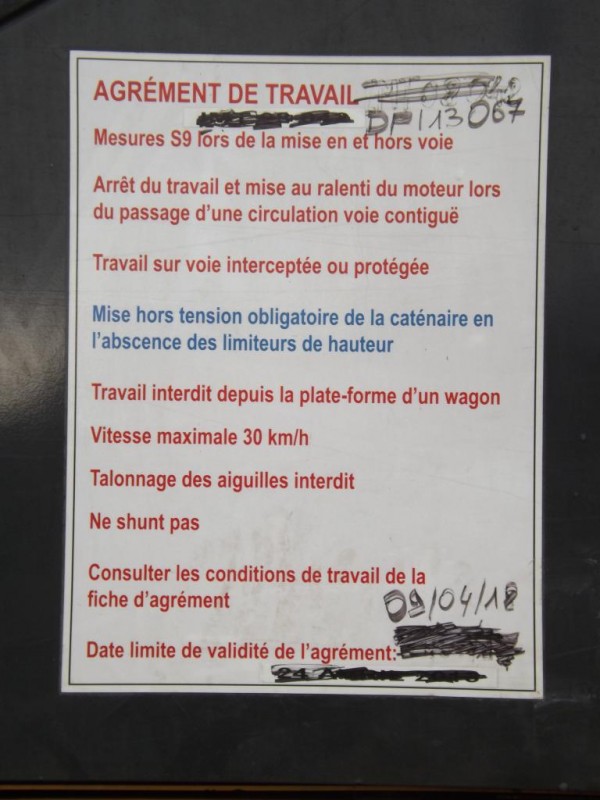 AGRÉMENT DE TRAVAIL
DF 113 067
Mesures S9 lors de la mise en et hors voie
Arrêt du travail et mise au ralenti du moteur lors
du passage d'une circulation voie contiguë
Travail sur voie interceptée ou protégée
Mise hors tension obligatoire de la caténaire en
l'abscence des limiteurs de hauteur
Travail interdit depuis la plate-forme d'un wagon
Vitesse maximale 30 km/h
Talonnage des aiguilles interdit
Ne shunt pas
Consulter les conditions de travail de la
fiche d'agrément
09/04/18
Date limite de validité de l'agrément: